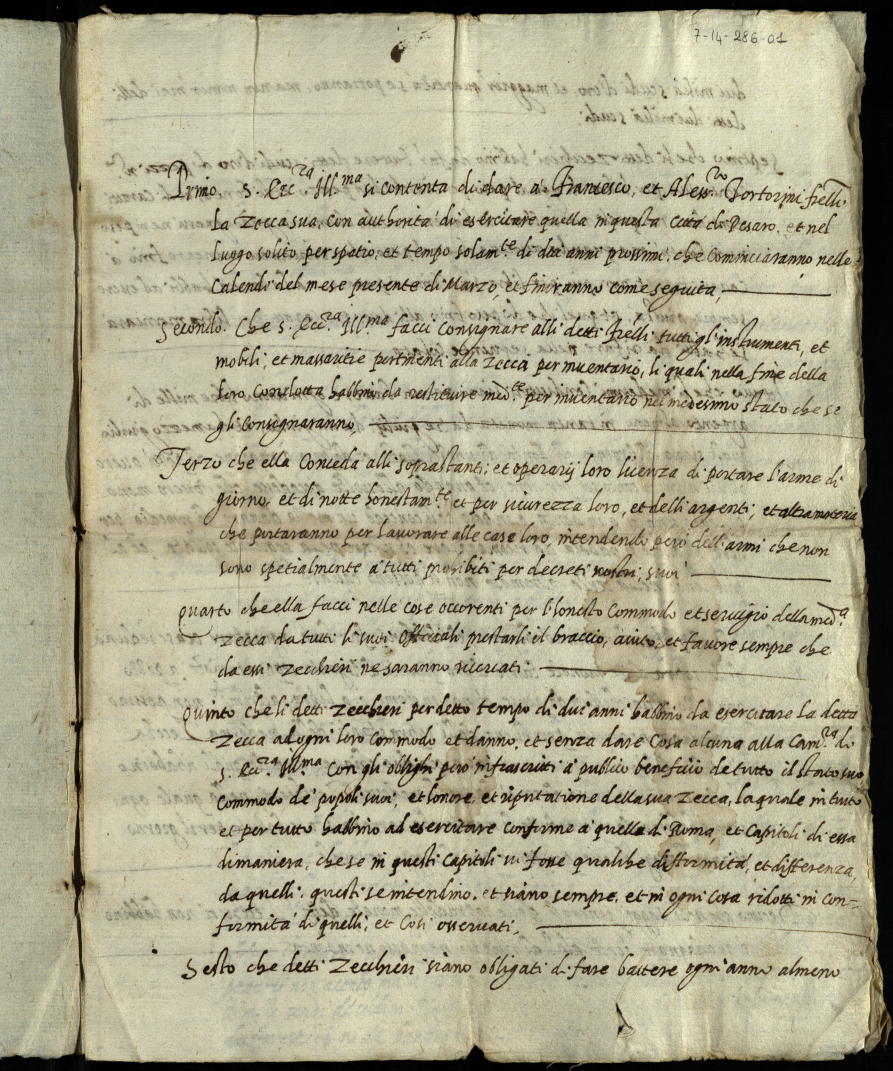 7-14-286-01
Primo. S. Ecc.za Ill.ma si contenta di dare a Francesco, et Aless.ro Tortorini frelli
La Zecca sua, con authorita di esercitare quella in questa Citta di Pesaro, et nel
luogo solito, per spatio, et tempo solam.te di dui anni prossimi, che cominciaranno nelle
Calendi del mese presente di Marzo, et finiranno come seguita,
Secondo. Che S. Ecc.za Ill.ma facci consignare alli detti frelli tutti gl'instrumenti, et
mobili, et massaritie pertinenti alla Zecca per inventario, li quali nella fine della
loro condotta habbino da restituire med.te per inventario nel medesimo stato che se
gli consignaranno,
Terzo che ella conceda alli soprastanti, et operarij loro licenza di portare l'arme di
giorno, et di notte honestam.te et per sicurezza loro, et delli argenti, et altra materia
che portaranno per lavorare alle case loro, intendendo però dell'armi che non
sono spetialmente à tutti prohibiti per decreti nostri, suoi
Quarto che ella facci nelle cose occorrenti per l'honesto commodo et servigio della med.a
Zecca da tutti li suoi offitiali prestarli il braccio, aiuto, et favore sempre che
da essi Zecchieri ne saranno ricercati
Quinto che li detti Zecchieri per detto tempo di dui anni habbino da esercitare la detta
Zecca ad ogni loro commodo et danno, et senza dare cosa alcuna alla Cam.ra di
S. Ecc.za Ill.ma con gli oblighi però infrascritti à publico beneficio de tutto il stato suo
commodo de popoli suoi, et honore, et riputatione della sua Zecca, la quale in tutto
et per tutto habbino ad esercitare conforme à quella di Roma, et Capitoli di essa
di maniera, che se in questi capitoli vi fosse qualche difformità, et differenza,
da quelli, questi se intendino, et siano sempre, et in ogni cosa ridotti in con=
formità di quelli, et così osservati,
Sesto che detti Zecchieri siano obligati di fare battere ogni anno almeno